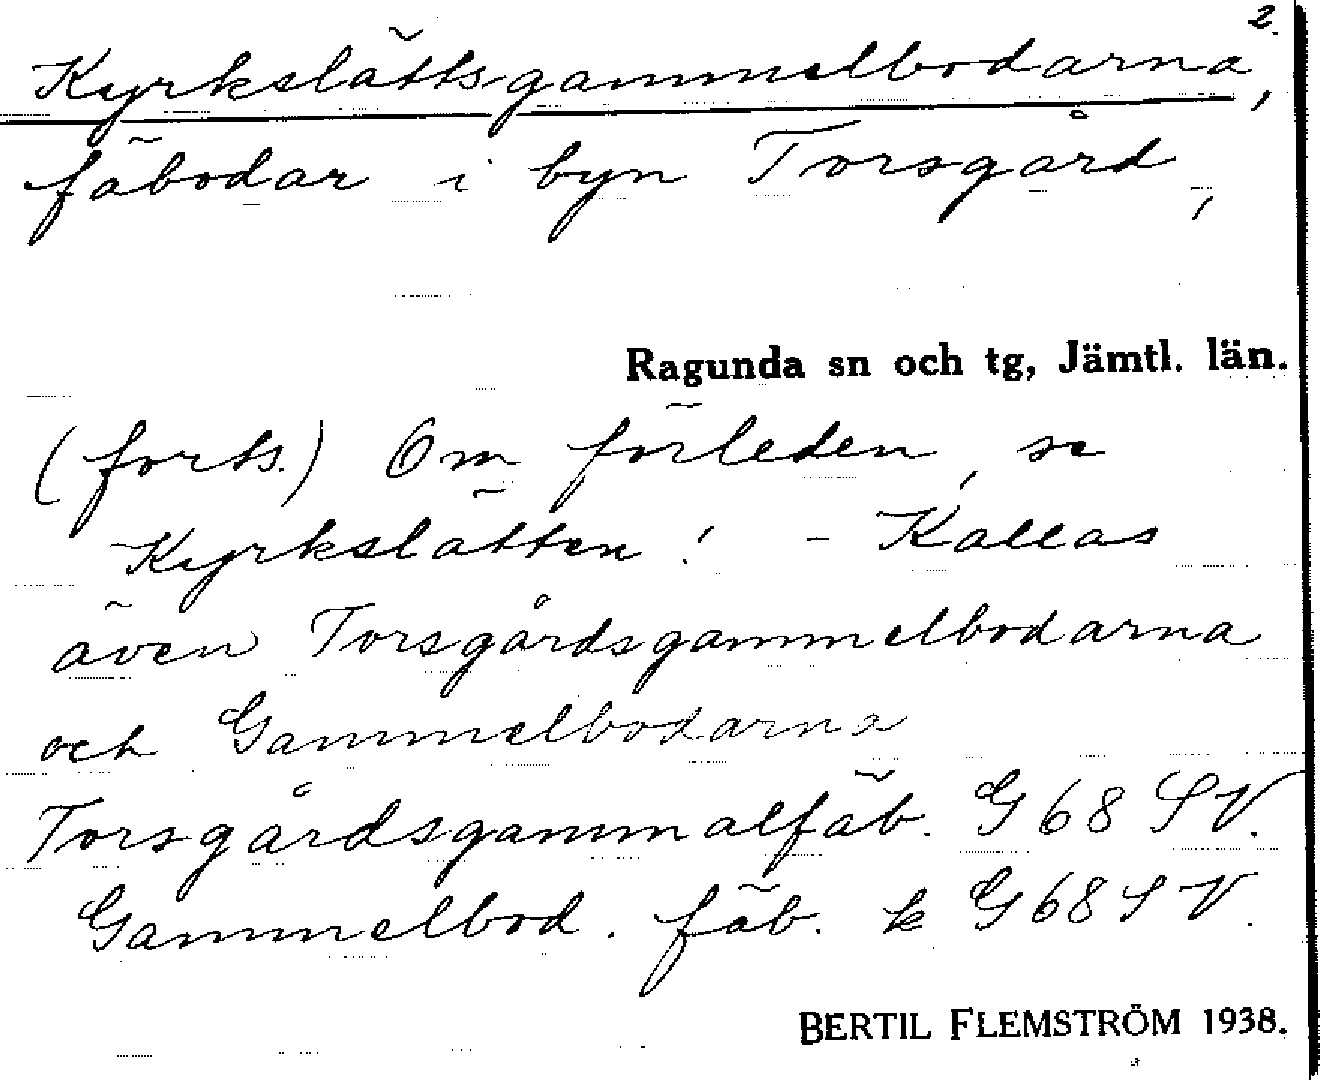 2.
Kyrkslättsgammelbodarna,
fäbodar i byn Torsgård,
Ragunda sn och tg, Jämtl. län.
(forts.) Om förleden, se
Kyrkslätten! - Kallas
även Torsgårdsgammelbodarna
och Gammelbodarna
Torsgårdsgammalfäb. G 68 SV.
Gammelbod. fäb. k G 68 SV.
BERTIL FLEMSTRÖM 1938.